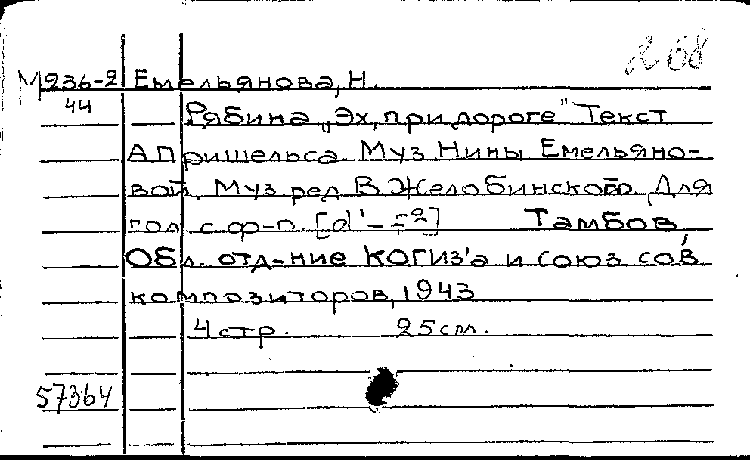 268
М236-2 Емельянова, Н.
44 Рябина „Эх, при дороге" Текст
А. Пришельса. Муз. Нины Емельяно-
вой. Муз. ред. В. Желобинского. Для
гол. с ф-п. [d'-f²] Тамбов,
Обл. отд-ние КОГИЗ'а и союз сов.
композиторов, 1943
4 стр. 25 см.
57364